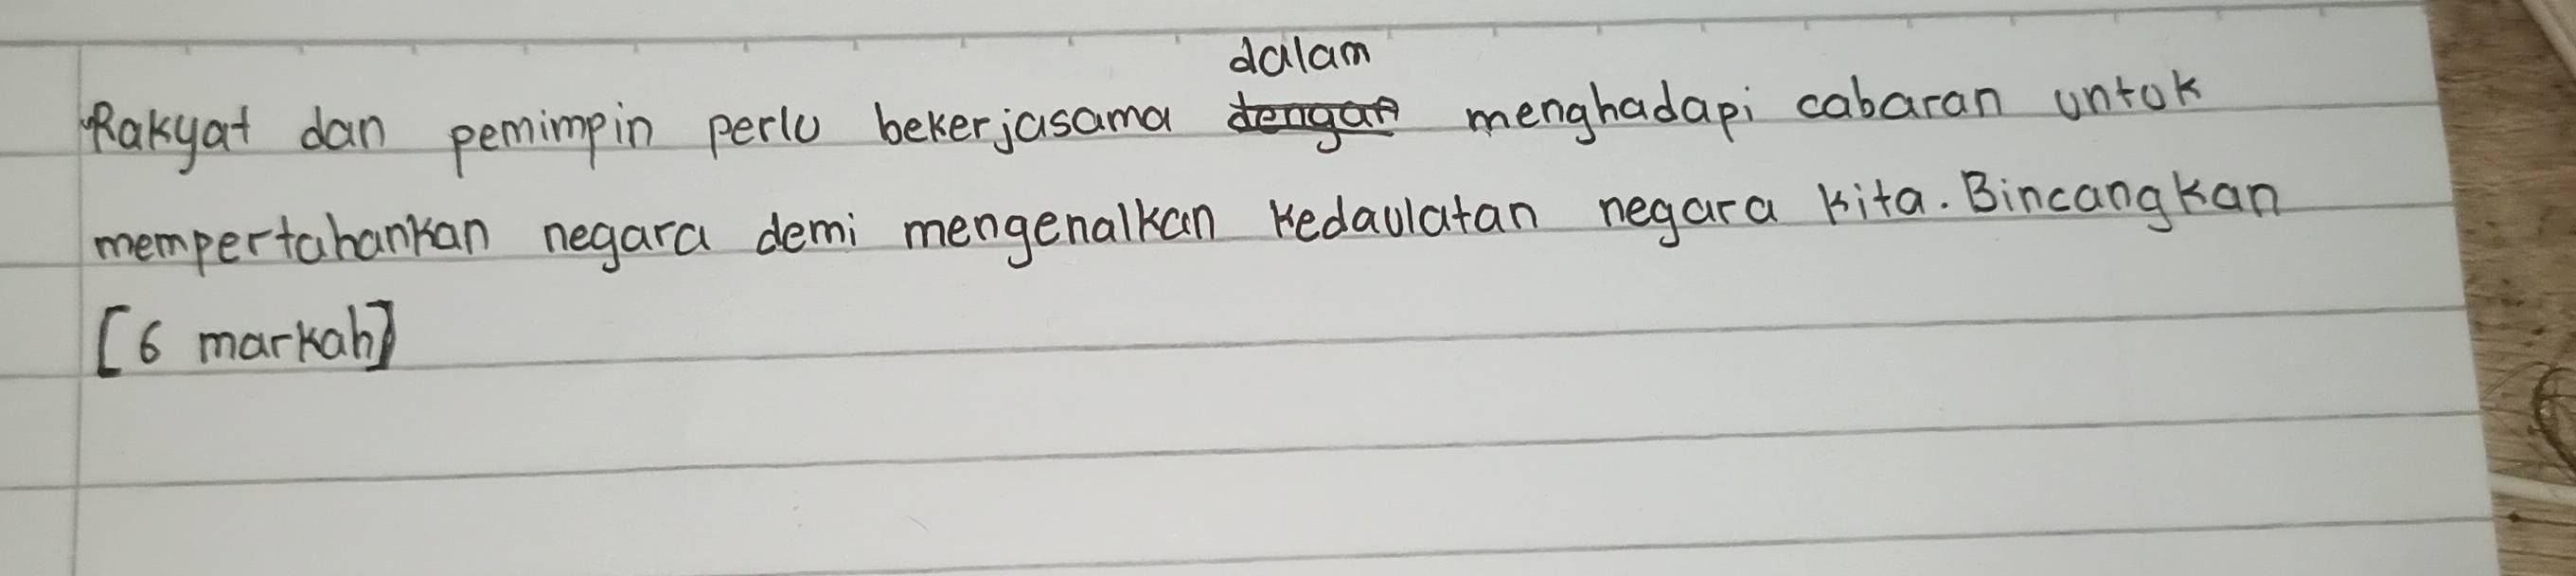 dalam
Rakyat dan pemimpin perlu bekerjasama dengan menghadapi cabaran untuk
mempertahankan negara demi mengenalkan kedaulatan negara kita. Bincangkan
[6 markah]